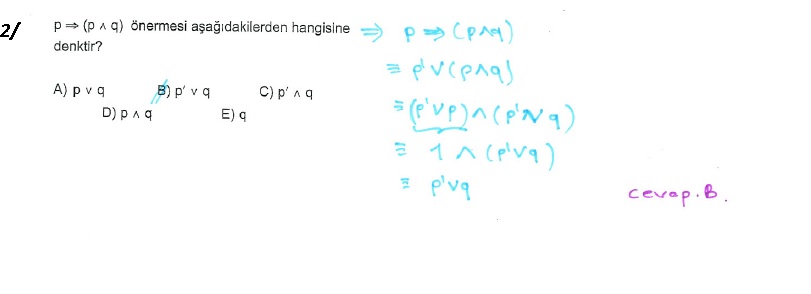 2/
p ⇒ (p ∧ q) önermesi aşağıdakilerden hangisine
denktir?
A) p ∨ q B) p′ ∨ q C) p′ ∧ q
D) p ∧ q E) q
⇒ p ⇒ (p∧q)
≡ p′∨(p∧q)
≡ (p′∨p)∧(p′∨q)
≡ 1 ∧ (p′∨q)
≡ p′∨q
cevap.B.